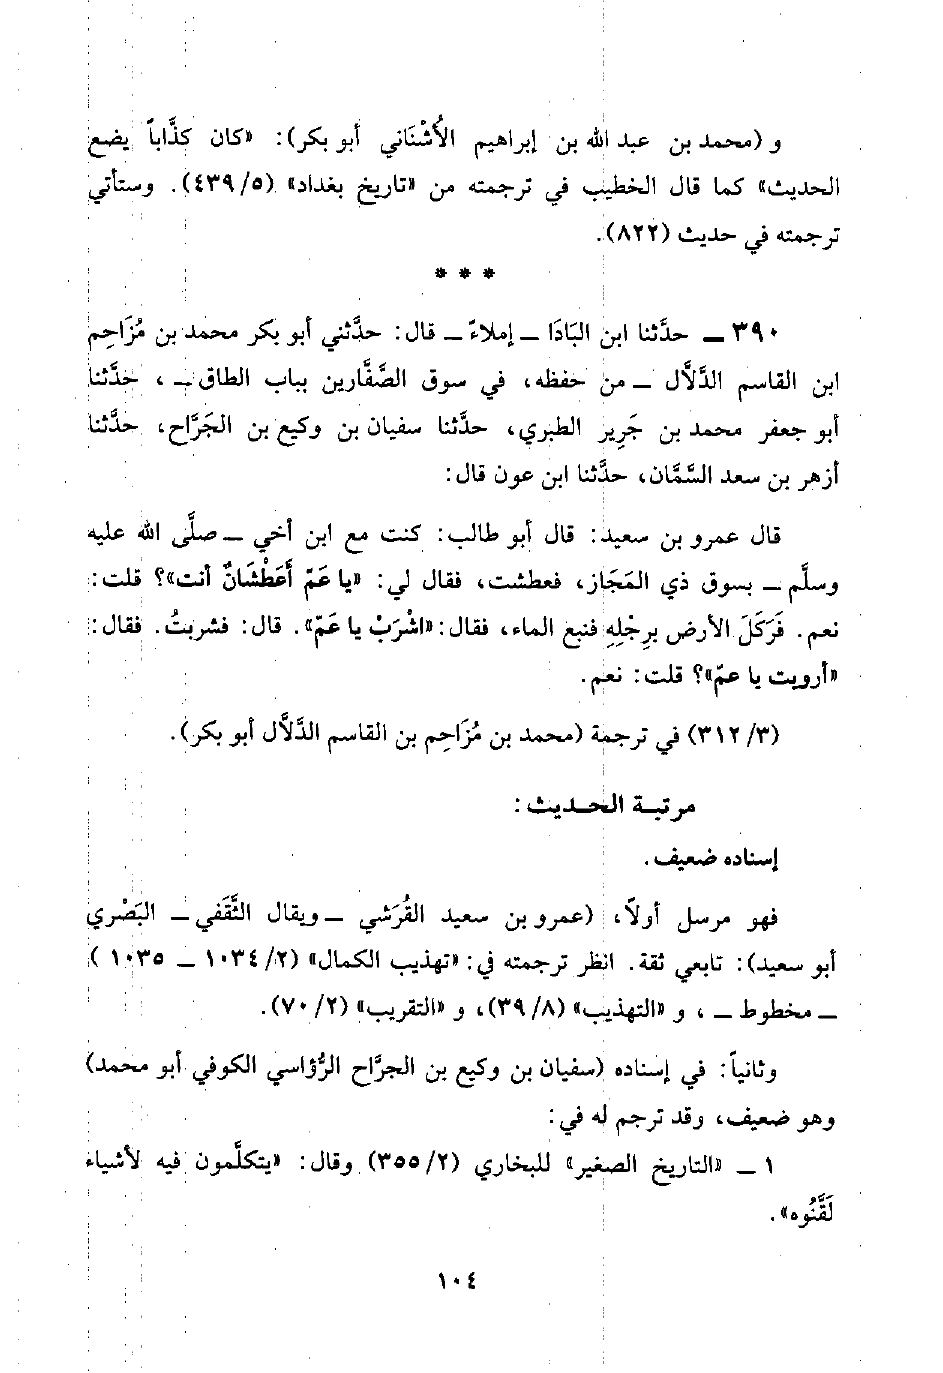 و (محمد بن عبد الله بن إبراهيم الأُشْنَاني أبو بكر): «كان كذَّاباً يضع
الحديث» كما قال الخطيب في ترجمته من «تاريخ بغداد» (٤٣٩/٥). وستأتي
ترجمته في حديث (٨٢٢).
* * *
٣٩٠ — حدَّثنا ابن البَادَا — إملاءً — قال: حدَّثني أبو بكر محمد بن مُزَاحِم
ابن القاسم الدَّلاَّل — من حفظه، في سوق الصَّفَّارين بباب الطاق —، حدَّثنا
أبو جعفر محمد بن جَرِير الطبري، حدَّثنا سفيان بن وكيع بن الجَرَّاح، حدَّثنا
أزهر بن سعد السَّمَّان، حدَّثنا ابن عون قال:
قال عمرو بن سعيد: قال أبو طالب: كنت مع ابن أخي — صلَّى الله عليه
وسلَّم — بسوق ذي المَجَاز، فعطشت، فقال لي: «يا عَمّ أَعَطْشَانٌ أنت»؟ قلت:
نعم. فَرَكَلَ الأرض بِرِجْلِهِ فنبع الماء، فقال: «اشْرَبْ يا عَمّ». قال: فشربتُ. فقال:
«أرويت يا عمّ»؟ قلت: نعم.
(٣١٢/٣) في ترجمة (محمد بن مُزَاحِم بن القاسم الدَّلاَّل أبو بكر).
مرتبـة الحـديث:
إسناده ضعيف.
فهو مرسل أولاً، (عمرو بن سعيد القُرَشي — ويقال الثَّقَفي — البَصْري
أبو سعيد): تابعي ثقة. انظر ترجمته في: «تهذيب الكمال» (١٠٣٤/٢ — ١٠٣٥)
— مخطوط —، و «التهذيب» (٣٩/٨)، و «التقريب» (٧٠/٢).
وثانياً: في إسناده (سفيان بن وكيع بن الجرَّاح الرُّؤاسي الكوفي أبو محمد)
وهو ضعيف، وقد ترجم له في:
١ — «التاريخ الصغير» للبخاري (٣٥٥/٢) وقال: «يتكلَّمون فيه لأشياء
لَقَّنُوه».
١٠٤